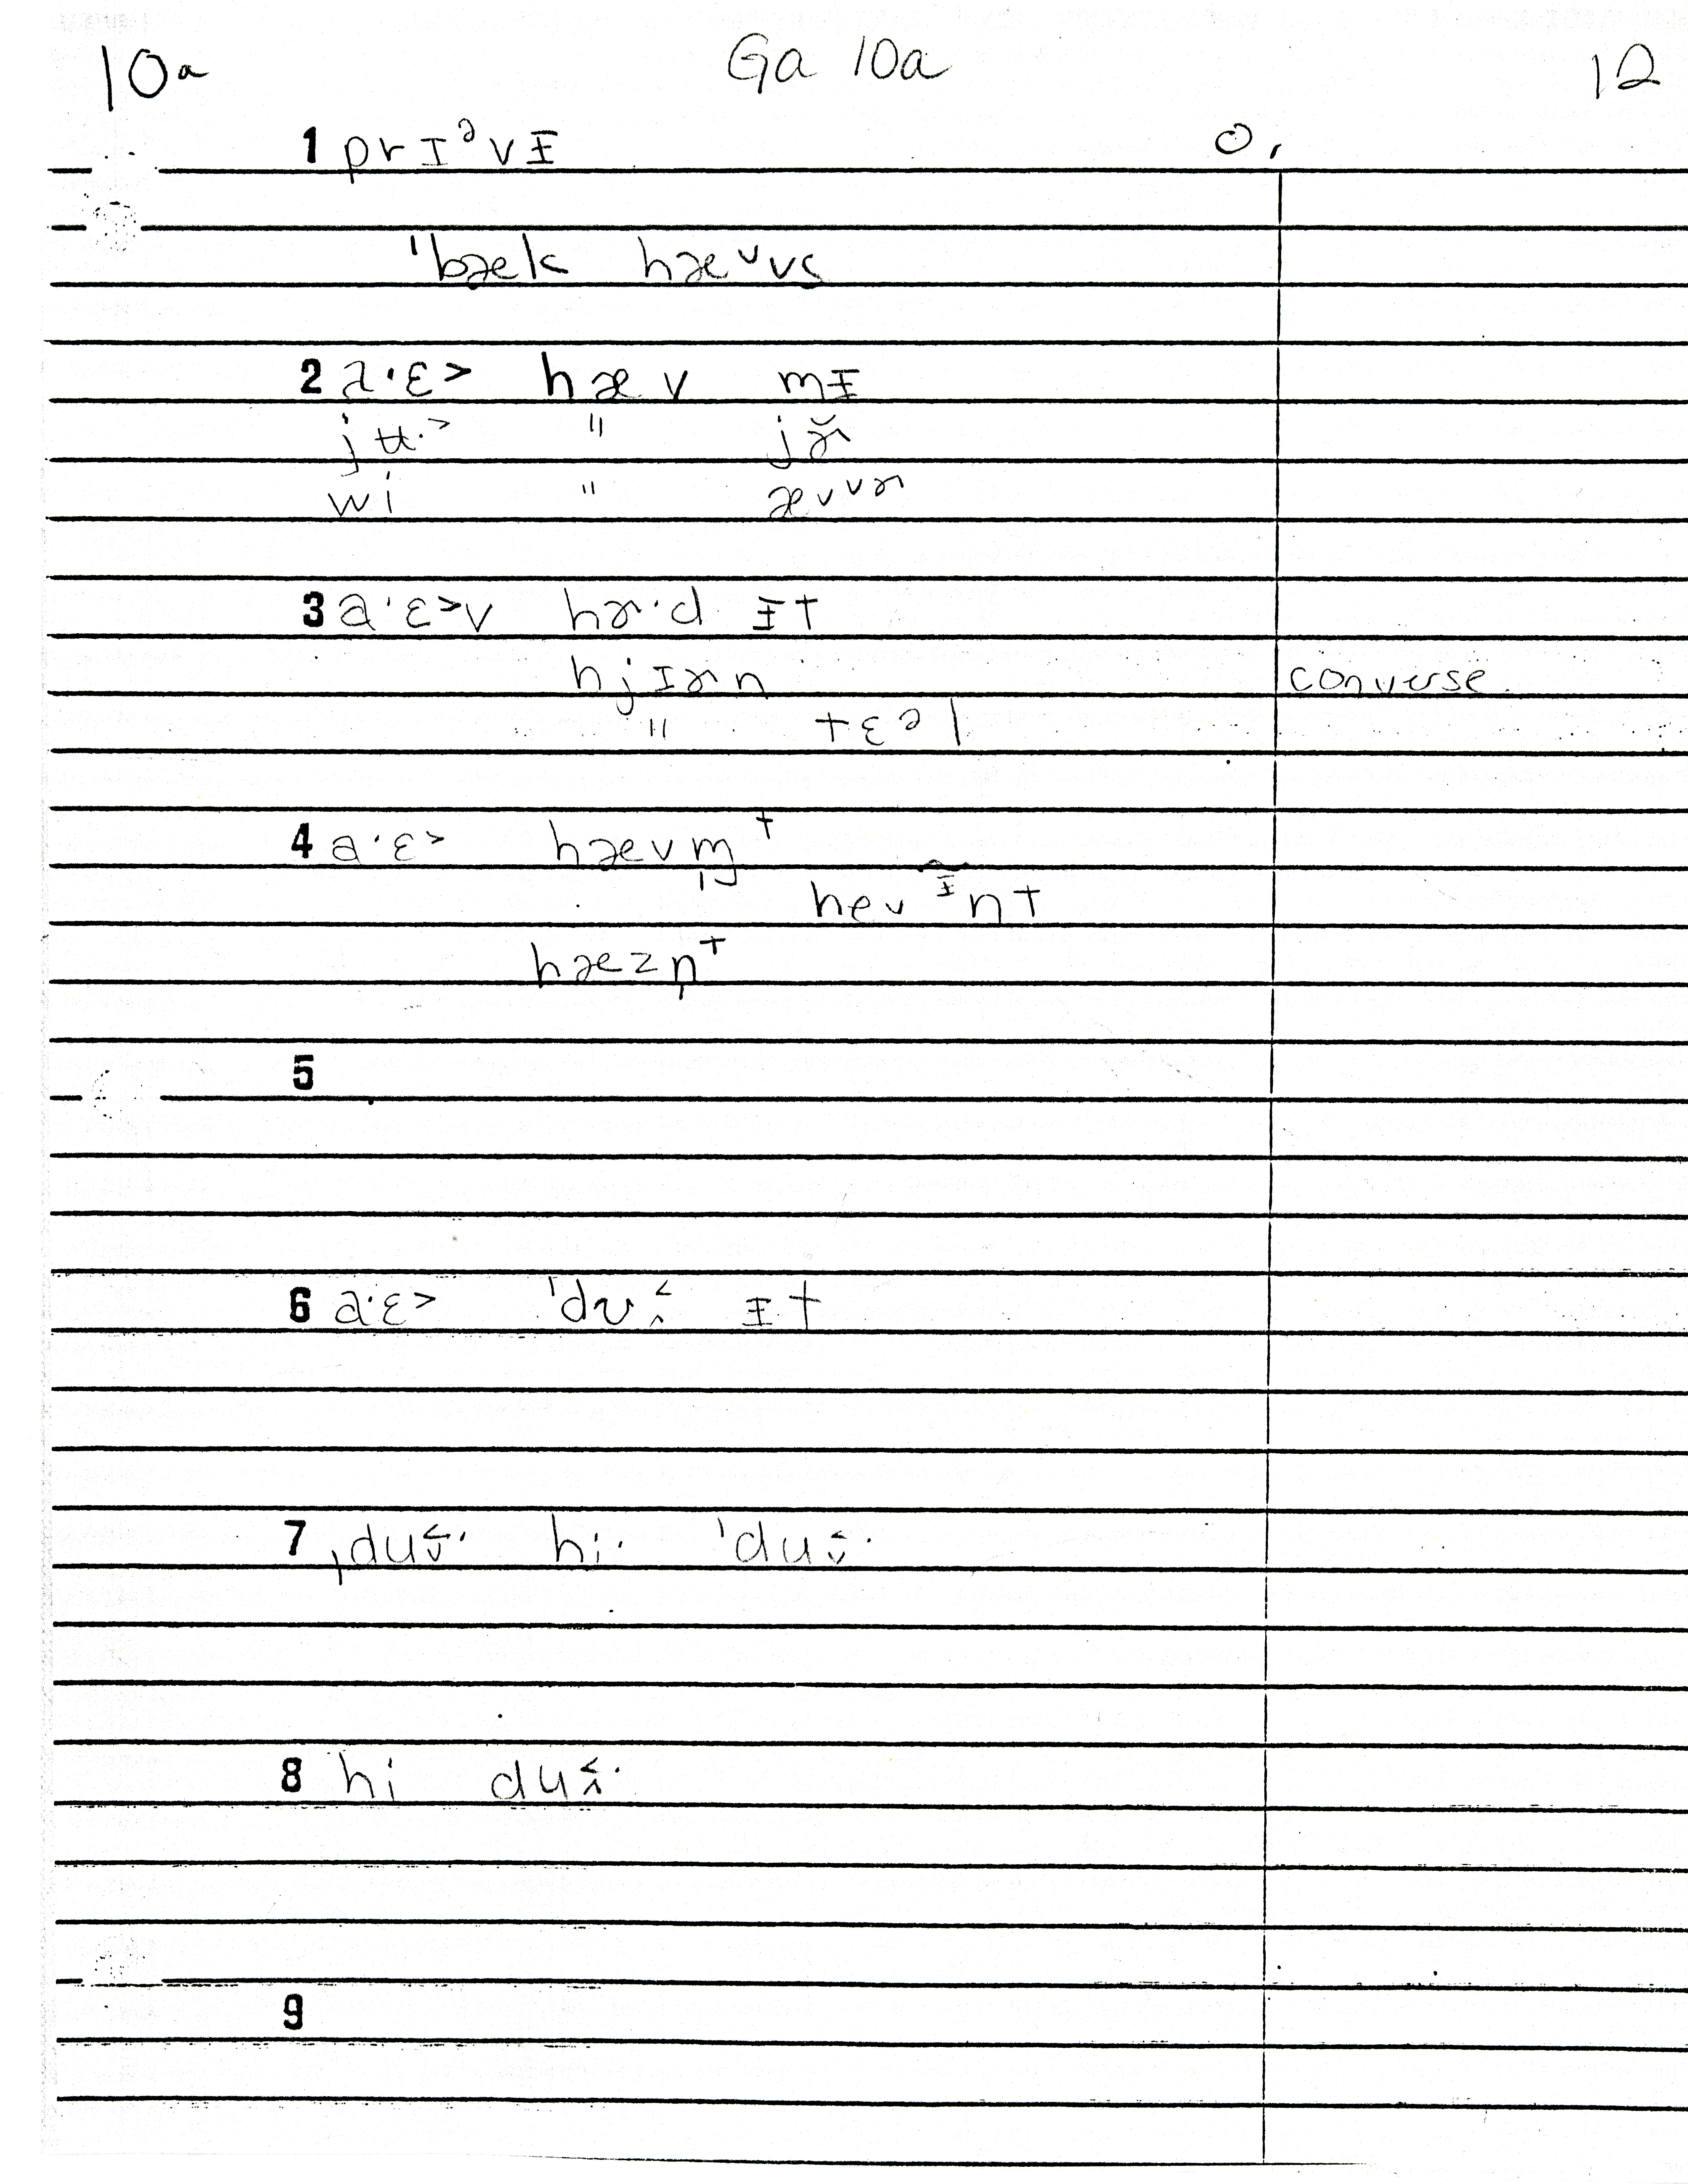 10a Ga 10a 12
1 prɪᵊvɪ̵ o,
ˈbæk hæᵛvs
2 a·ɛ> hæv mɪ̵
jʉ·> " jɚ̆
wi " ævᵛɚ
3 a·ɛ>v hɚ·d ɪ̵t
hjɪɚn converse.
" tɛᵊl
4 a·ɛ> hævm̩ᵗ
hev ɪ̵̃nt
hæzn̩ᵗ
5
6 a·ɛ> ˈdu ɪ̵t
7 ˌdu hi· ˈdu
8 hi du
9